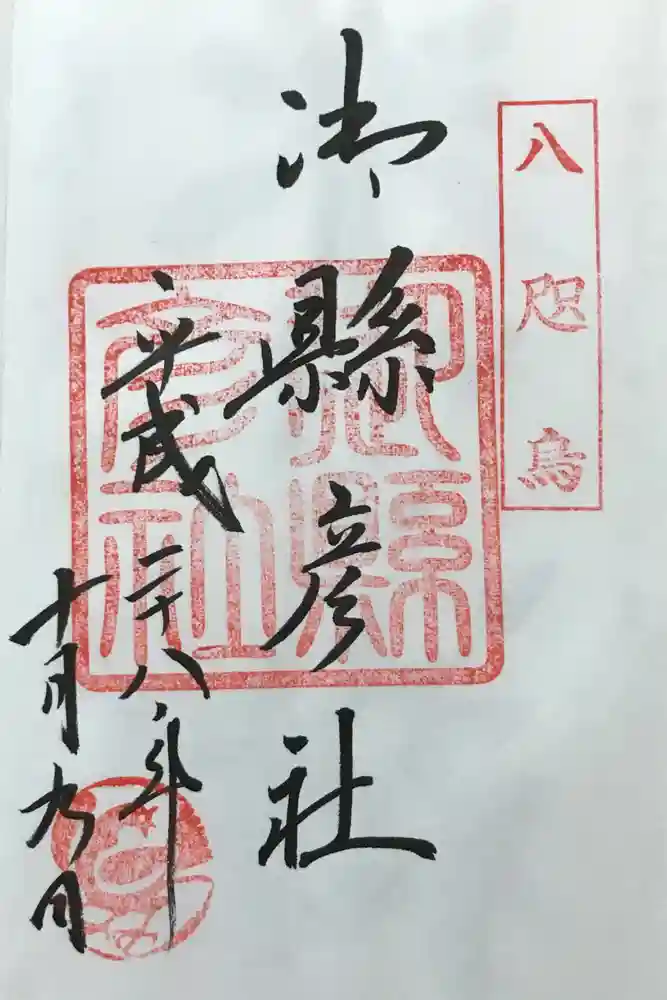 八咫烏
御縣彦社
御縣彦社
平成二十八年
十月九日